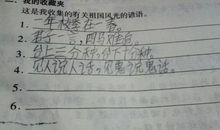 我的收藏夹
这是我收集的有关祖国风光的谚语。
1. 一年之季在一春。
2. 君子一言,四马难追。
3. 台上三分钟,台下十个钟。
4. 见人说人话,见鬼说鬼话。
5.
6.